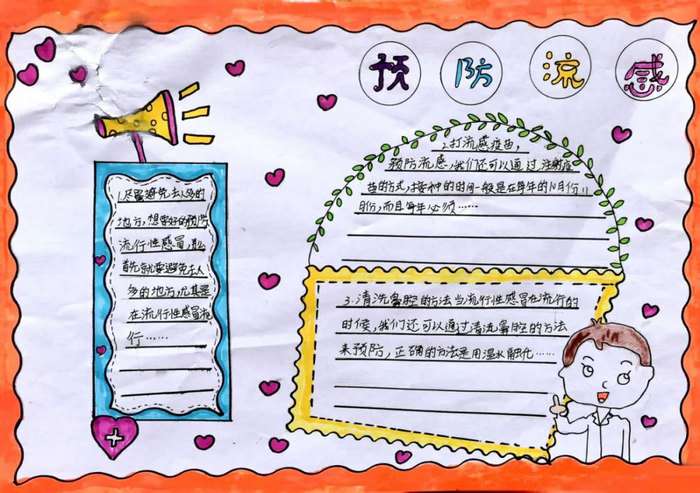 预防流感
1.尽量避免去人多的
地方,想要好的预防
流行性感冒,那么
首先就要避免去人
多的地方,尤其是
在流行性感冒流
行……
2.打流感疫苗,
预防流感,我们还可以通过注射疫
苗的方式,接种的时间一般是在每年的10月份11
月份,而且每年必须……
3.清洗鼻腔的方法当流行性感冒在流行的
时候,我们还可以通过清洗鼻腔的方法
来预防,正确的方法是用温水融化……